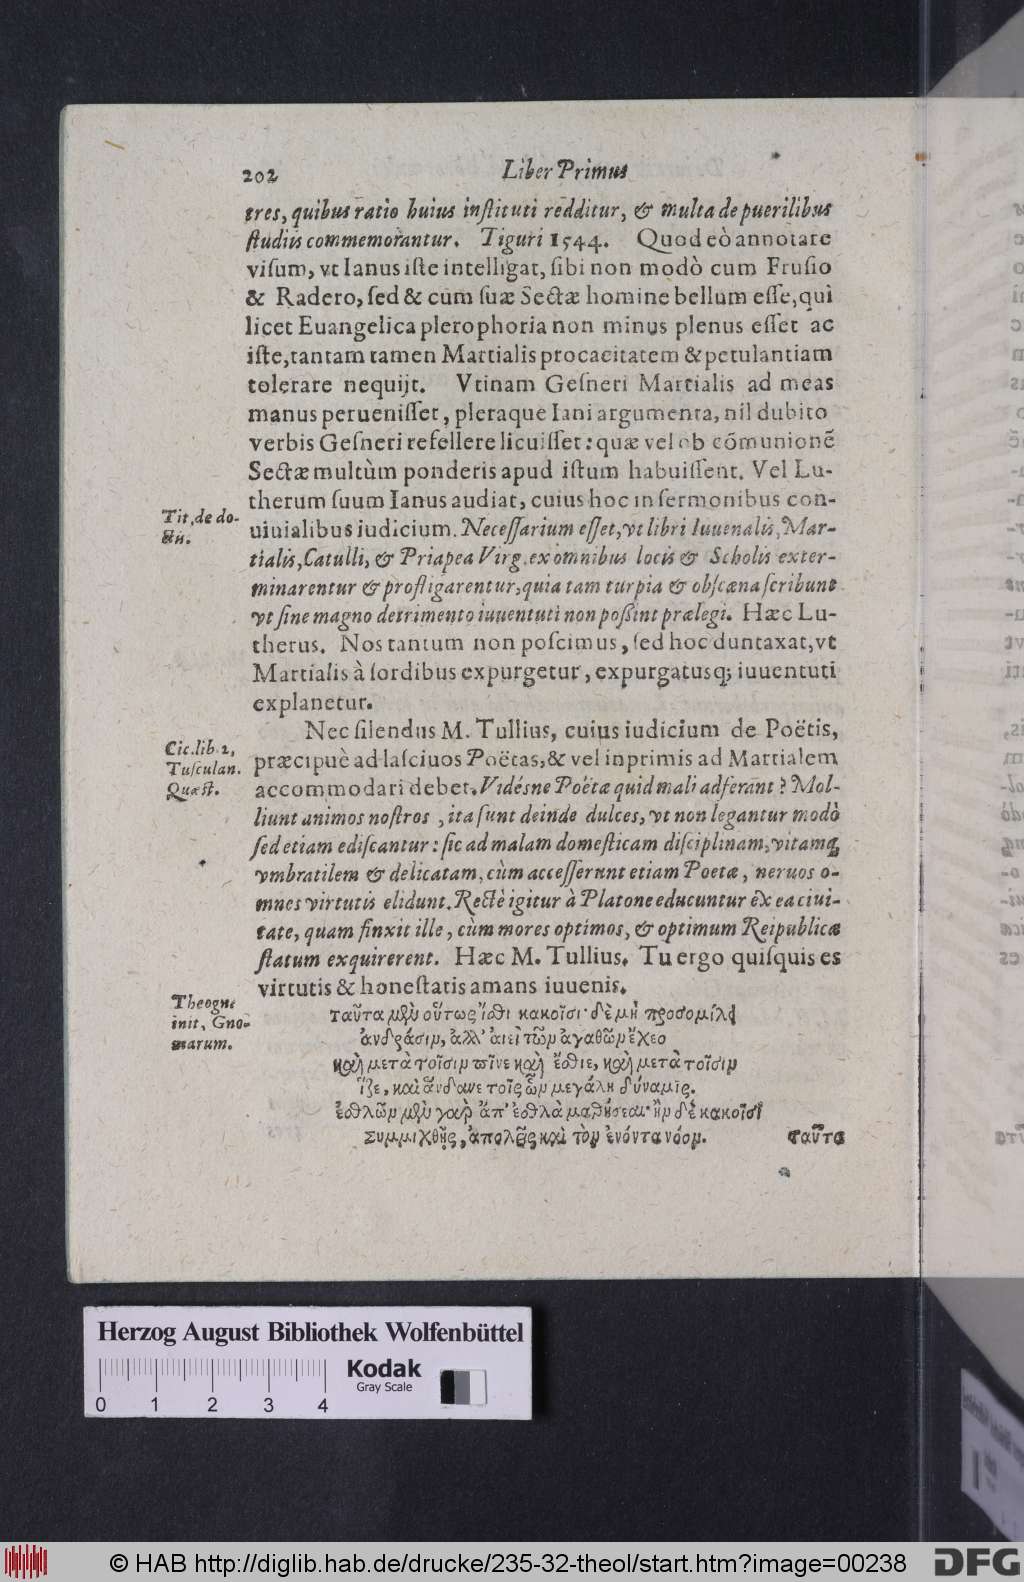 202 Liber Primus
tres, quibus ratio huius inſtituti redditur, & multa de puerilibus
ſtudiis commemorantur. Tiguri 1544. Quod eò annotare
viſum, vt Ianus iſte intelligat, ſibi non modò cum Fruſio
& Radero, ſed & cum ſuæ Sectæ homine bellum eſſe, qui
licet Euangelica plerophoria non minus plenus eſſet ac
iſte, tantam tamen Martialis procacitatem & petulantiam
tolerare nequijt. Vtinam Geſneri Martialis ad meas
manus perueniſſet, pleraque Iani argumenta, nil dubito
verbis Geſneri refellere licuiſſet: quæ vel ob cõmunionẽ
Sectæ multùm ponderis apud iſtum habuiſſent. Vel Lu-
therum ſuum Ianus audiat, cuius hoc in ſermonibus con-
Tit. de do-
ctis.
uiuialibus iudicium. Neceſſarium eſſet, vt libri Iuuenalis, Mar-
tialis, Catulli, & Priapea Virg. ex omnibus locis & Scholis exter-
minarentur & profligarentur, quia tam turpia & obſcæna ſcribunt
vt ſine magno detrimento iuuentuti non poßint prælegi. Hæc Lu-
therus. Nos tantum non poſcimus, ſed hoc duntaxat, vt
Martialis à ſordibus expurgetur, expurgatusq; iuuentuti
explanetur.
Nec ſilendus M. Tullius, cuius iudicium de Poëtis,
Cic. lib. 2,
Tuſculan.
Quæſt.
præcipuè ad laſciuos Poëtas, & vel inprimis ad Martialem
accommodari debet. Vidésne Poëtæ quid mali adferant? Mol-
liunt animos noſtros, ita ſunt deinde dulces, vt non legantur modò
ſed etiam ediſcantur: ſic ad malam domeſticam diſciplinam, vitamq;
vmbratilem & delicatam, cùm acceſſerunt etiam Poetæ, neruos o-
mnes virtutis elidunt. Rectè igitur à Platone educuntur ex ea ciui-
tate, quam finxit ille, cùm mores optimos, & optimum Reipublicæ
ſtatum exquirerent. Hæc M. Tullius. Tu ergo quiſquis es
virtutis & honeſtatis amans iuuenis.
Theogn.
init. Gno-
marum.
ταῦτα μὲν οὕτως ἴσθι κακοῖσι δὲ μὴ προσομίλει
ἀνδράσιν, ἀλλ' αἰεὶ τῶν ἀγαθῶν ἔχεο
καὶ μετὰ τοῖσιν πῖνε καὶ ἔσθιε, καὶ μετὰ τοῖσιν
ἵζε, καὶ ἅνδανε τοῖς ὧν μεγάλη δύναμις.
ἐσθλῶν μὲν γὰρ ἄπ' ἐσθλὰ μαθήσεαι· ἢν δὲ κακοῖσι
συμμιχθῇς, ἀπολεῖς καὶ τὸν ἐνόντα νόον.
ταῦτα
Herzog August Bibliothek Wolfenbüttel
Kodak
Gray Scale
0 1 2 3 4
© HAB http://diglib.hab.de/drucke/235-32-theol/start.htm?image=00238
DFG